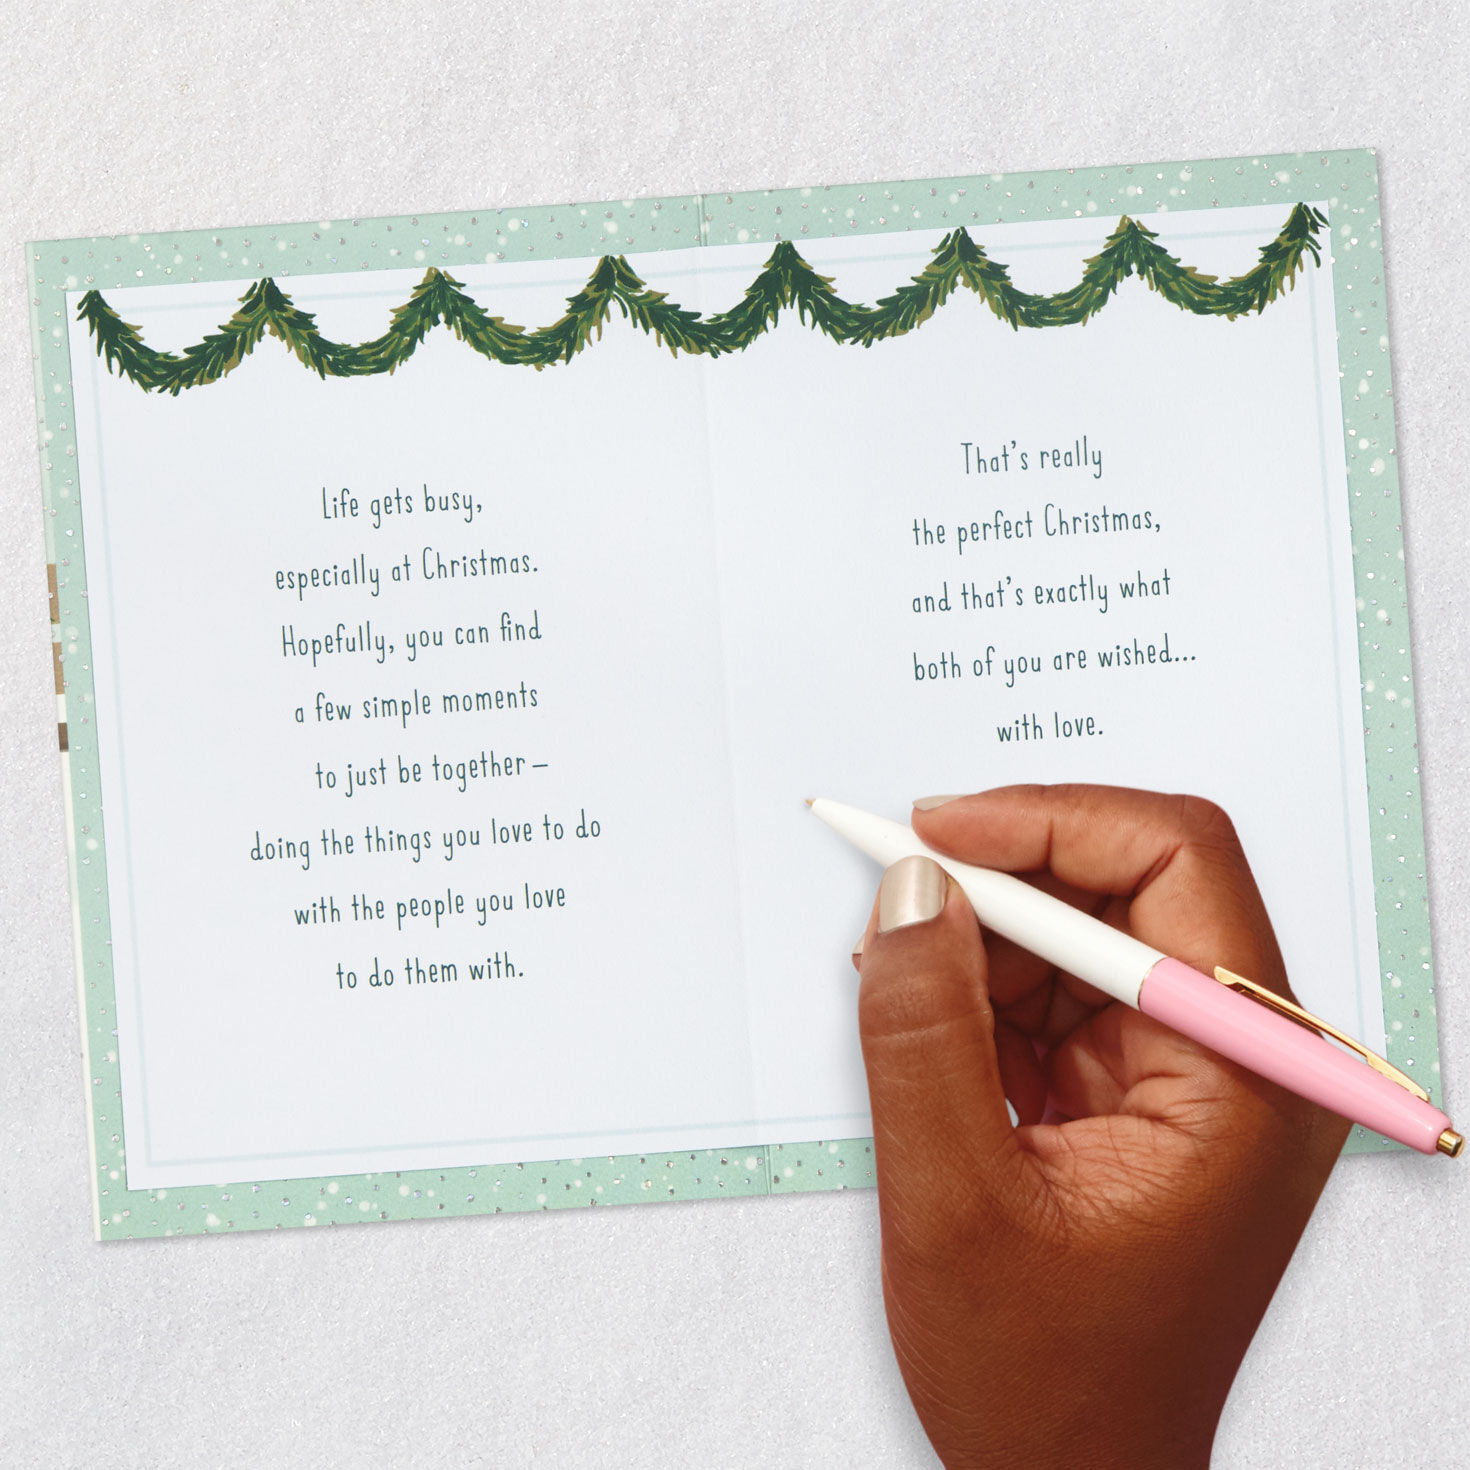 Life gets busy,
especially at Christmas.
Hopefully, you can find
a few simple moments
to just be together—
doing the things you love to do
with the people you love
to do them with.
That's really
the perfect Christmas,
and that's exactly what
both of you are wished...
with love.